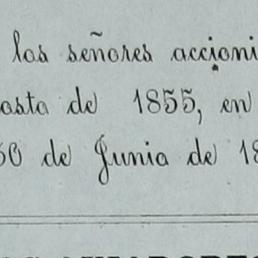 los señores accioni
asta de 1855, en
30 de Junio de 18